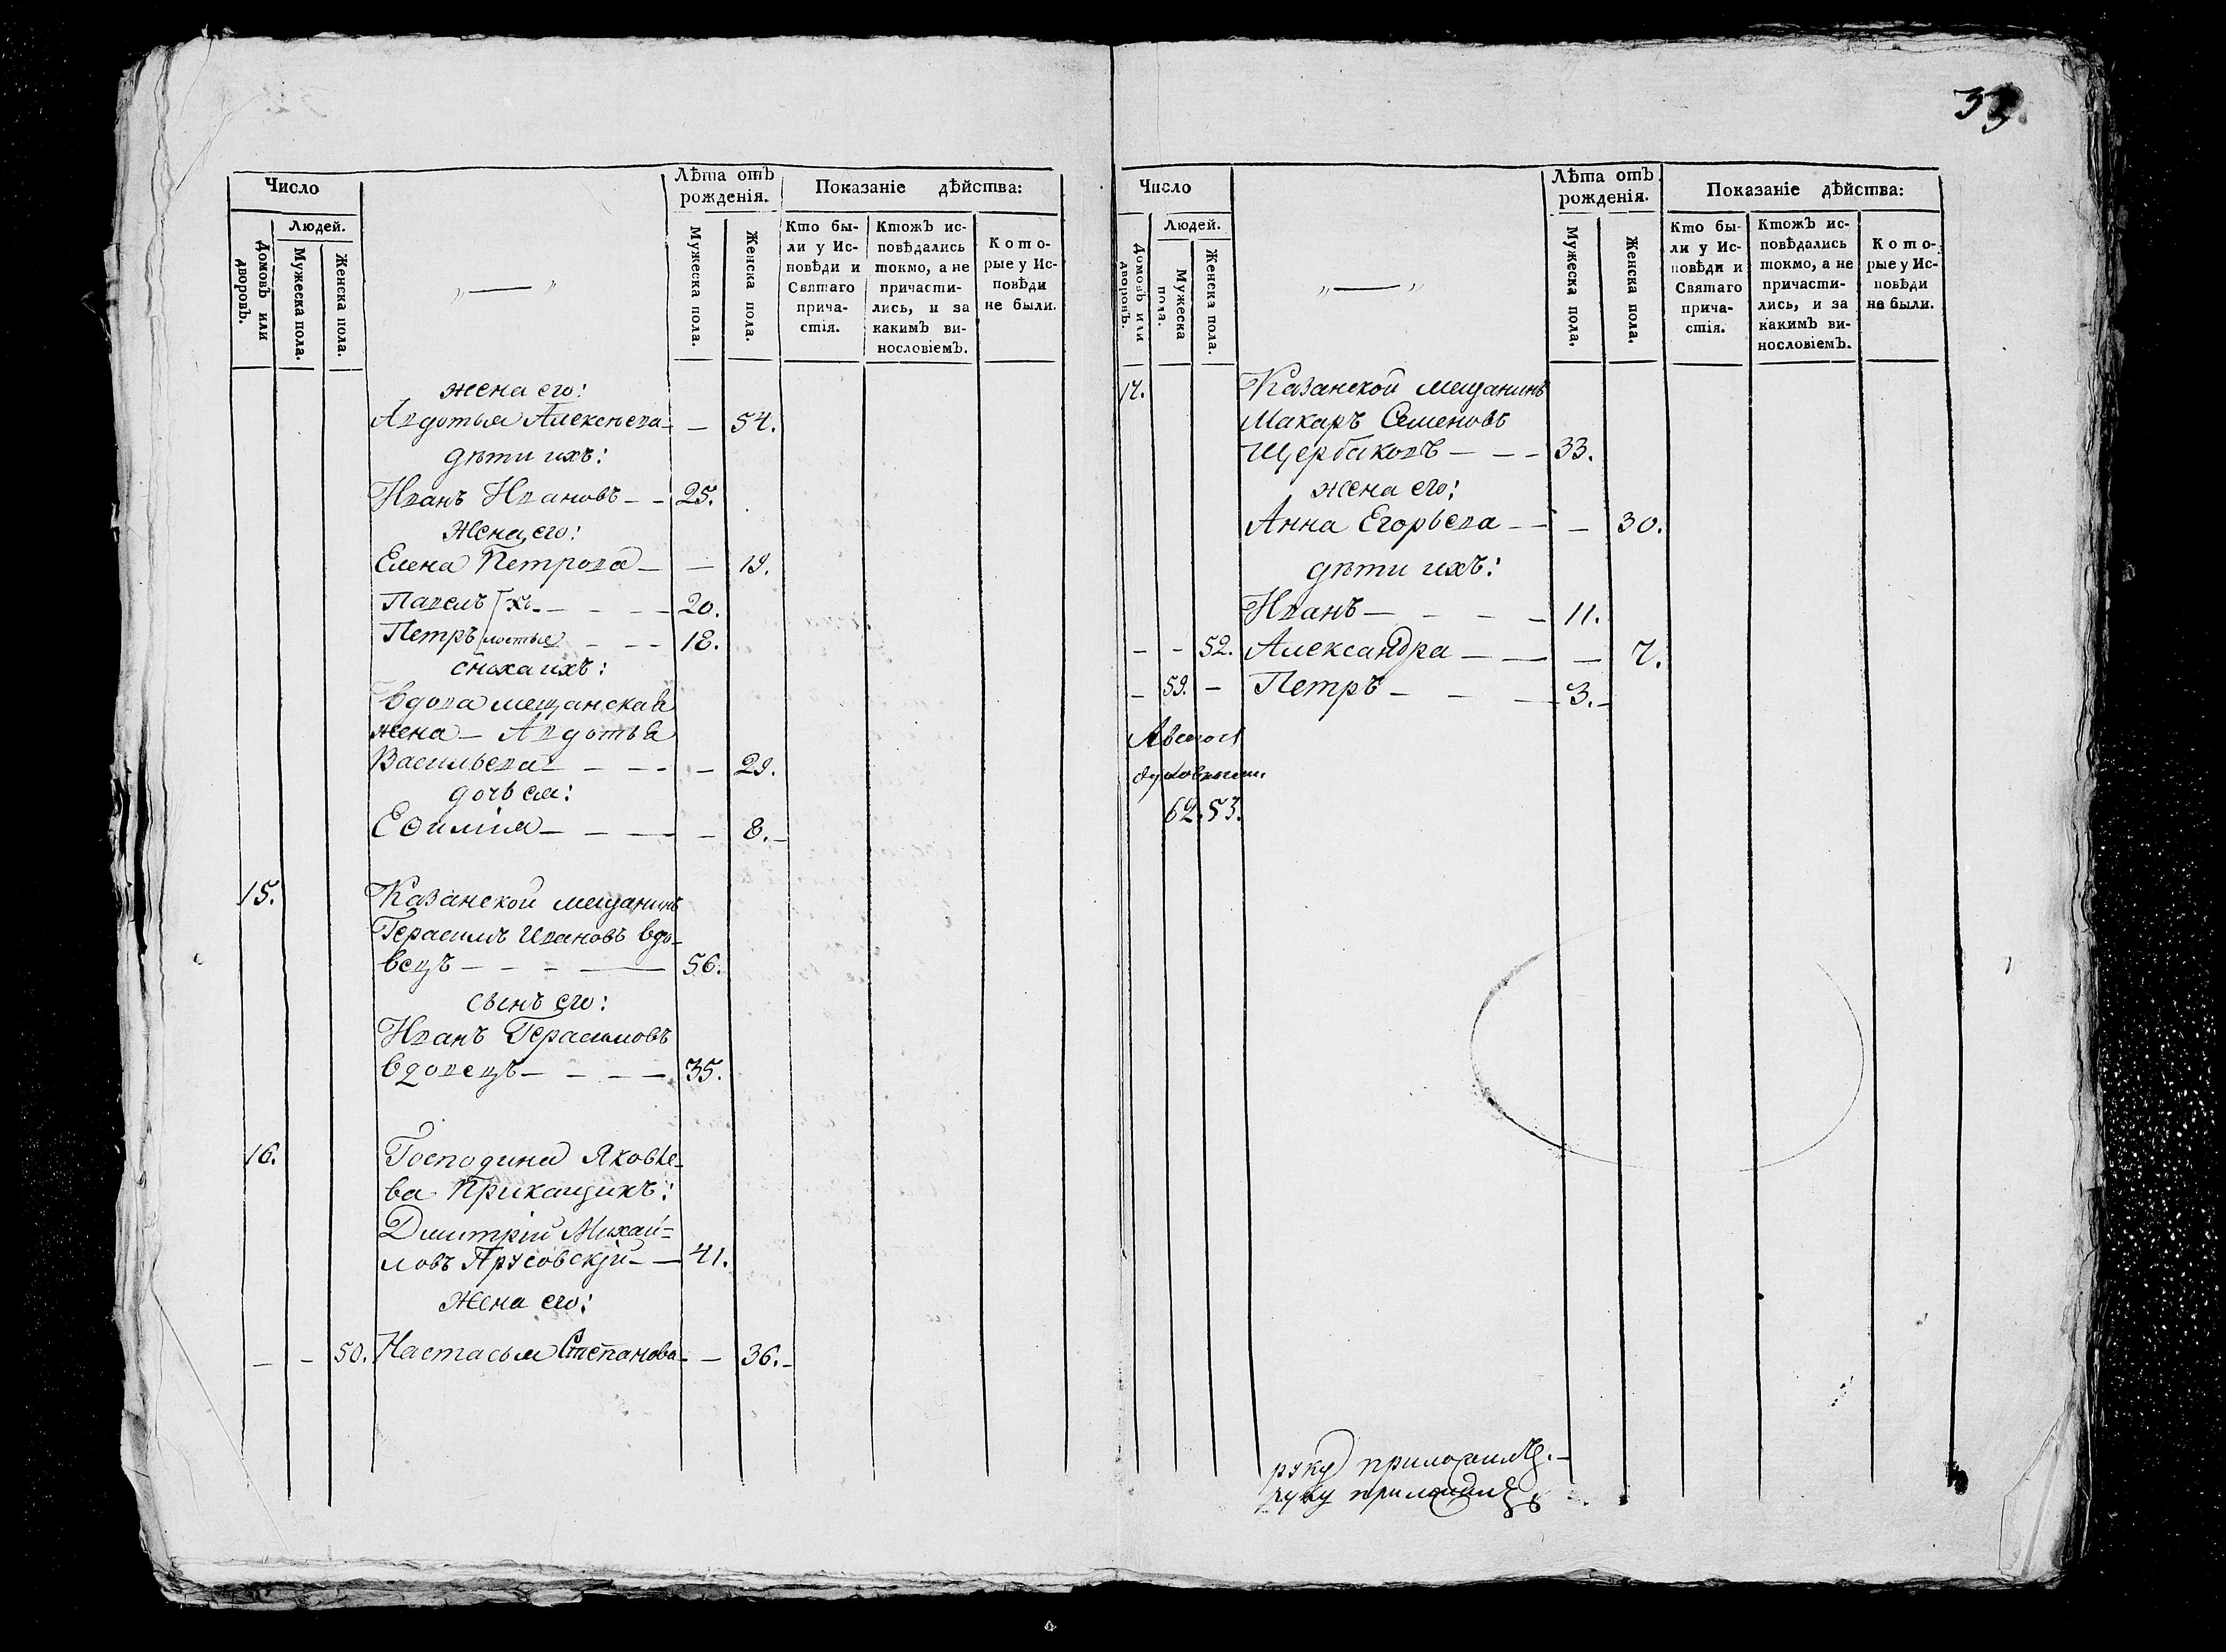 33.
Число
Лѣта отъ рожденія.
Показаніе дѣйства:
Людей.
Домовъ или дворовъ.
Мужеска пола.
Женска пола.
Мужеска пола.
Женска пола.
Кто были у Исповѣди и Святаго причастія.
Ктожъ исповѣдались токмо, а не причастились, и за какимъ винословіемъ.
Которые у Исповѣди не были.
„ — „
жена его:
Авдотья Алексѣева — — 54.
дѣти ихъ:
Иванъ Ивановъ — — 25.
жена его:
Елена Петрова — — 19.
Павелъ — — — 20.
Петръ — — 18.
сноха ихъ:
вдова мещанская
жена — Авдотья
Васильева — — — — 29.
дочь ея:
Еѳимія — — — — 8. —
15. Казанской мещанинъ
Герасимъ Ивановъ вдо-
вецъ — — — — 56.
сынъ его:
Иванъ Герасимовъ
вдовецъ — — — — 35.
16. Господина Яковле-
ва Прикащикъ:
Дмитрій Михай=
ловъ Прусовскій — — 41.
жена его:
— — 50. Настасья Степанова — — 36. —
Число
Лѣта отъ рожденія.
Показаніе дѣйства:
Людей.
Домовъ или дворовъ.
Мужеска пола.
Женска пола.
Мужеска пола.
Женска пола.
Кто были у Исповѣди и Святаго причастія.
Ктожъ исповѣдались токмо, а не причастились, и за какимъ винословіемъ.
Которые у Исповѣди не были.
„ — „
17. Казанской мещанинъ
Макаръ Семеновъ
Щербаковъ — — — 33.
жена его:
Анна Егорьева — — — 30.
дѣти ихъ:
Иванъ — — — — 11.
— — 52. Александра — — — 7.
— 59. — Петръ — — — 3. —
62. 53.
руку приложилъ. —
руку приложилъ